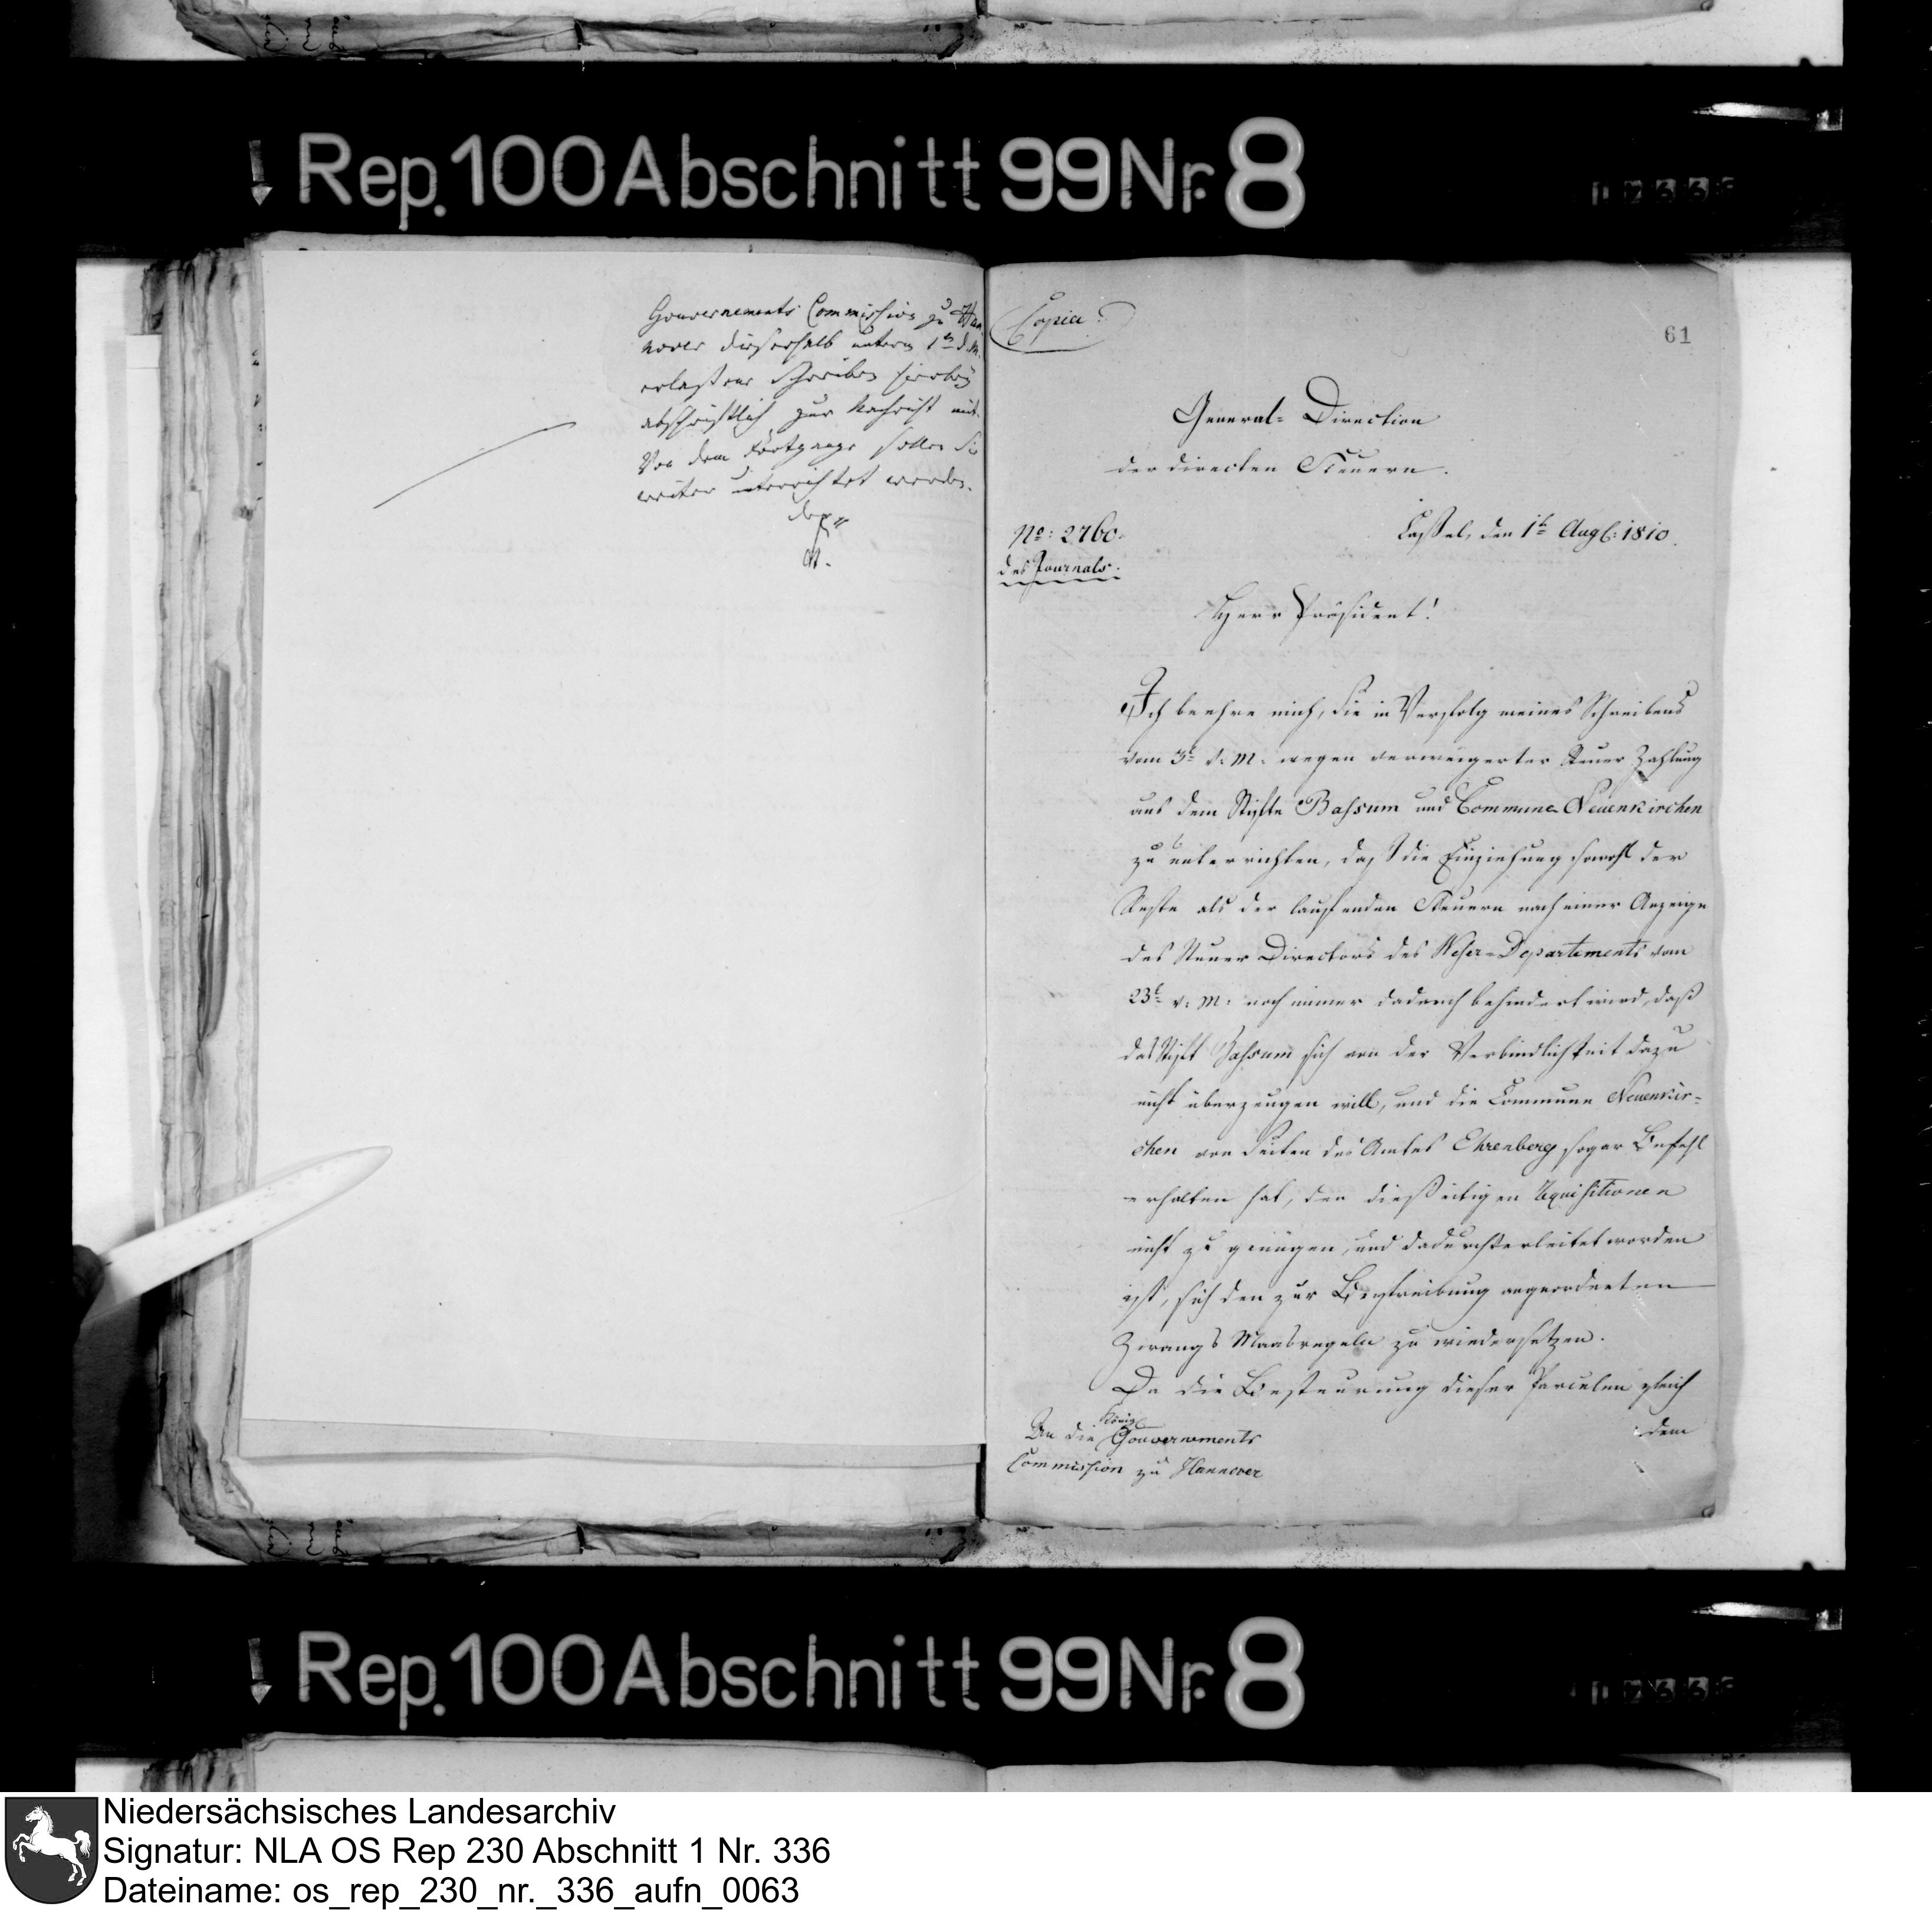 Rep. 100 Abschnitt 99 Nr. 8
Gouvernements Commission zu Han
nover dieserhalb unterm 1t d. M.
erlaßene Schreiben hierbey
abschriftlich zur Nachricht mit.
Von dem Fortgange sollen Sie
weiter unterrichtet werden.
Copia.
61
General-Direction
der directen Steuern.
No: 2760.
des Journals.
Cassel, den 1t Aug: 1810.
Herr Präsident!
Ich beehre mich, Sie in Verfolg meines Schreibens
vom 3t v. M. wegen verweigerter Steuer Zahlung
aus dem Stifte Bassum und Commune Neuenkirchen
zu unterrichten, daß die Einziehung sowohl der
Reste als der laufenden Steuern nach einer Anzeige
des Steuer Directors des Weser-Departements vom
23t v. M. noch immer dadurch behindert wird, daß
das Stift Bassum sich von der Verbindlichkeit dazu
nicht überzeugen will, und die Commune Neuenkir-
chen von Seiten des Amtes Ehrenberg sogar Befehl
erhalten hat, den dießeitigen Requisitionen
nicht zu genügen, und dadurch verleitet worden
ist, sich den zur Beytreibung angeordneten
Zwangs Maasregeln zu wiedersetzen.
Da die Besteurung dieser Parcelen gleich
dem
An die Königl. Gouvernements
Commission zu Hannover
Rep. 100 Abschnitt 99 Nr. 8
Niedersächsisches Landesarchiv
Signatur: NLA OS Rep 230 Abschnitt 1 Nr. 336
Dateiname: os_rep_230_nr._336_aufn_0063